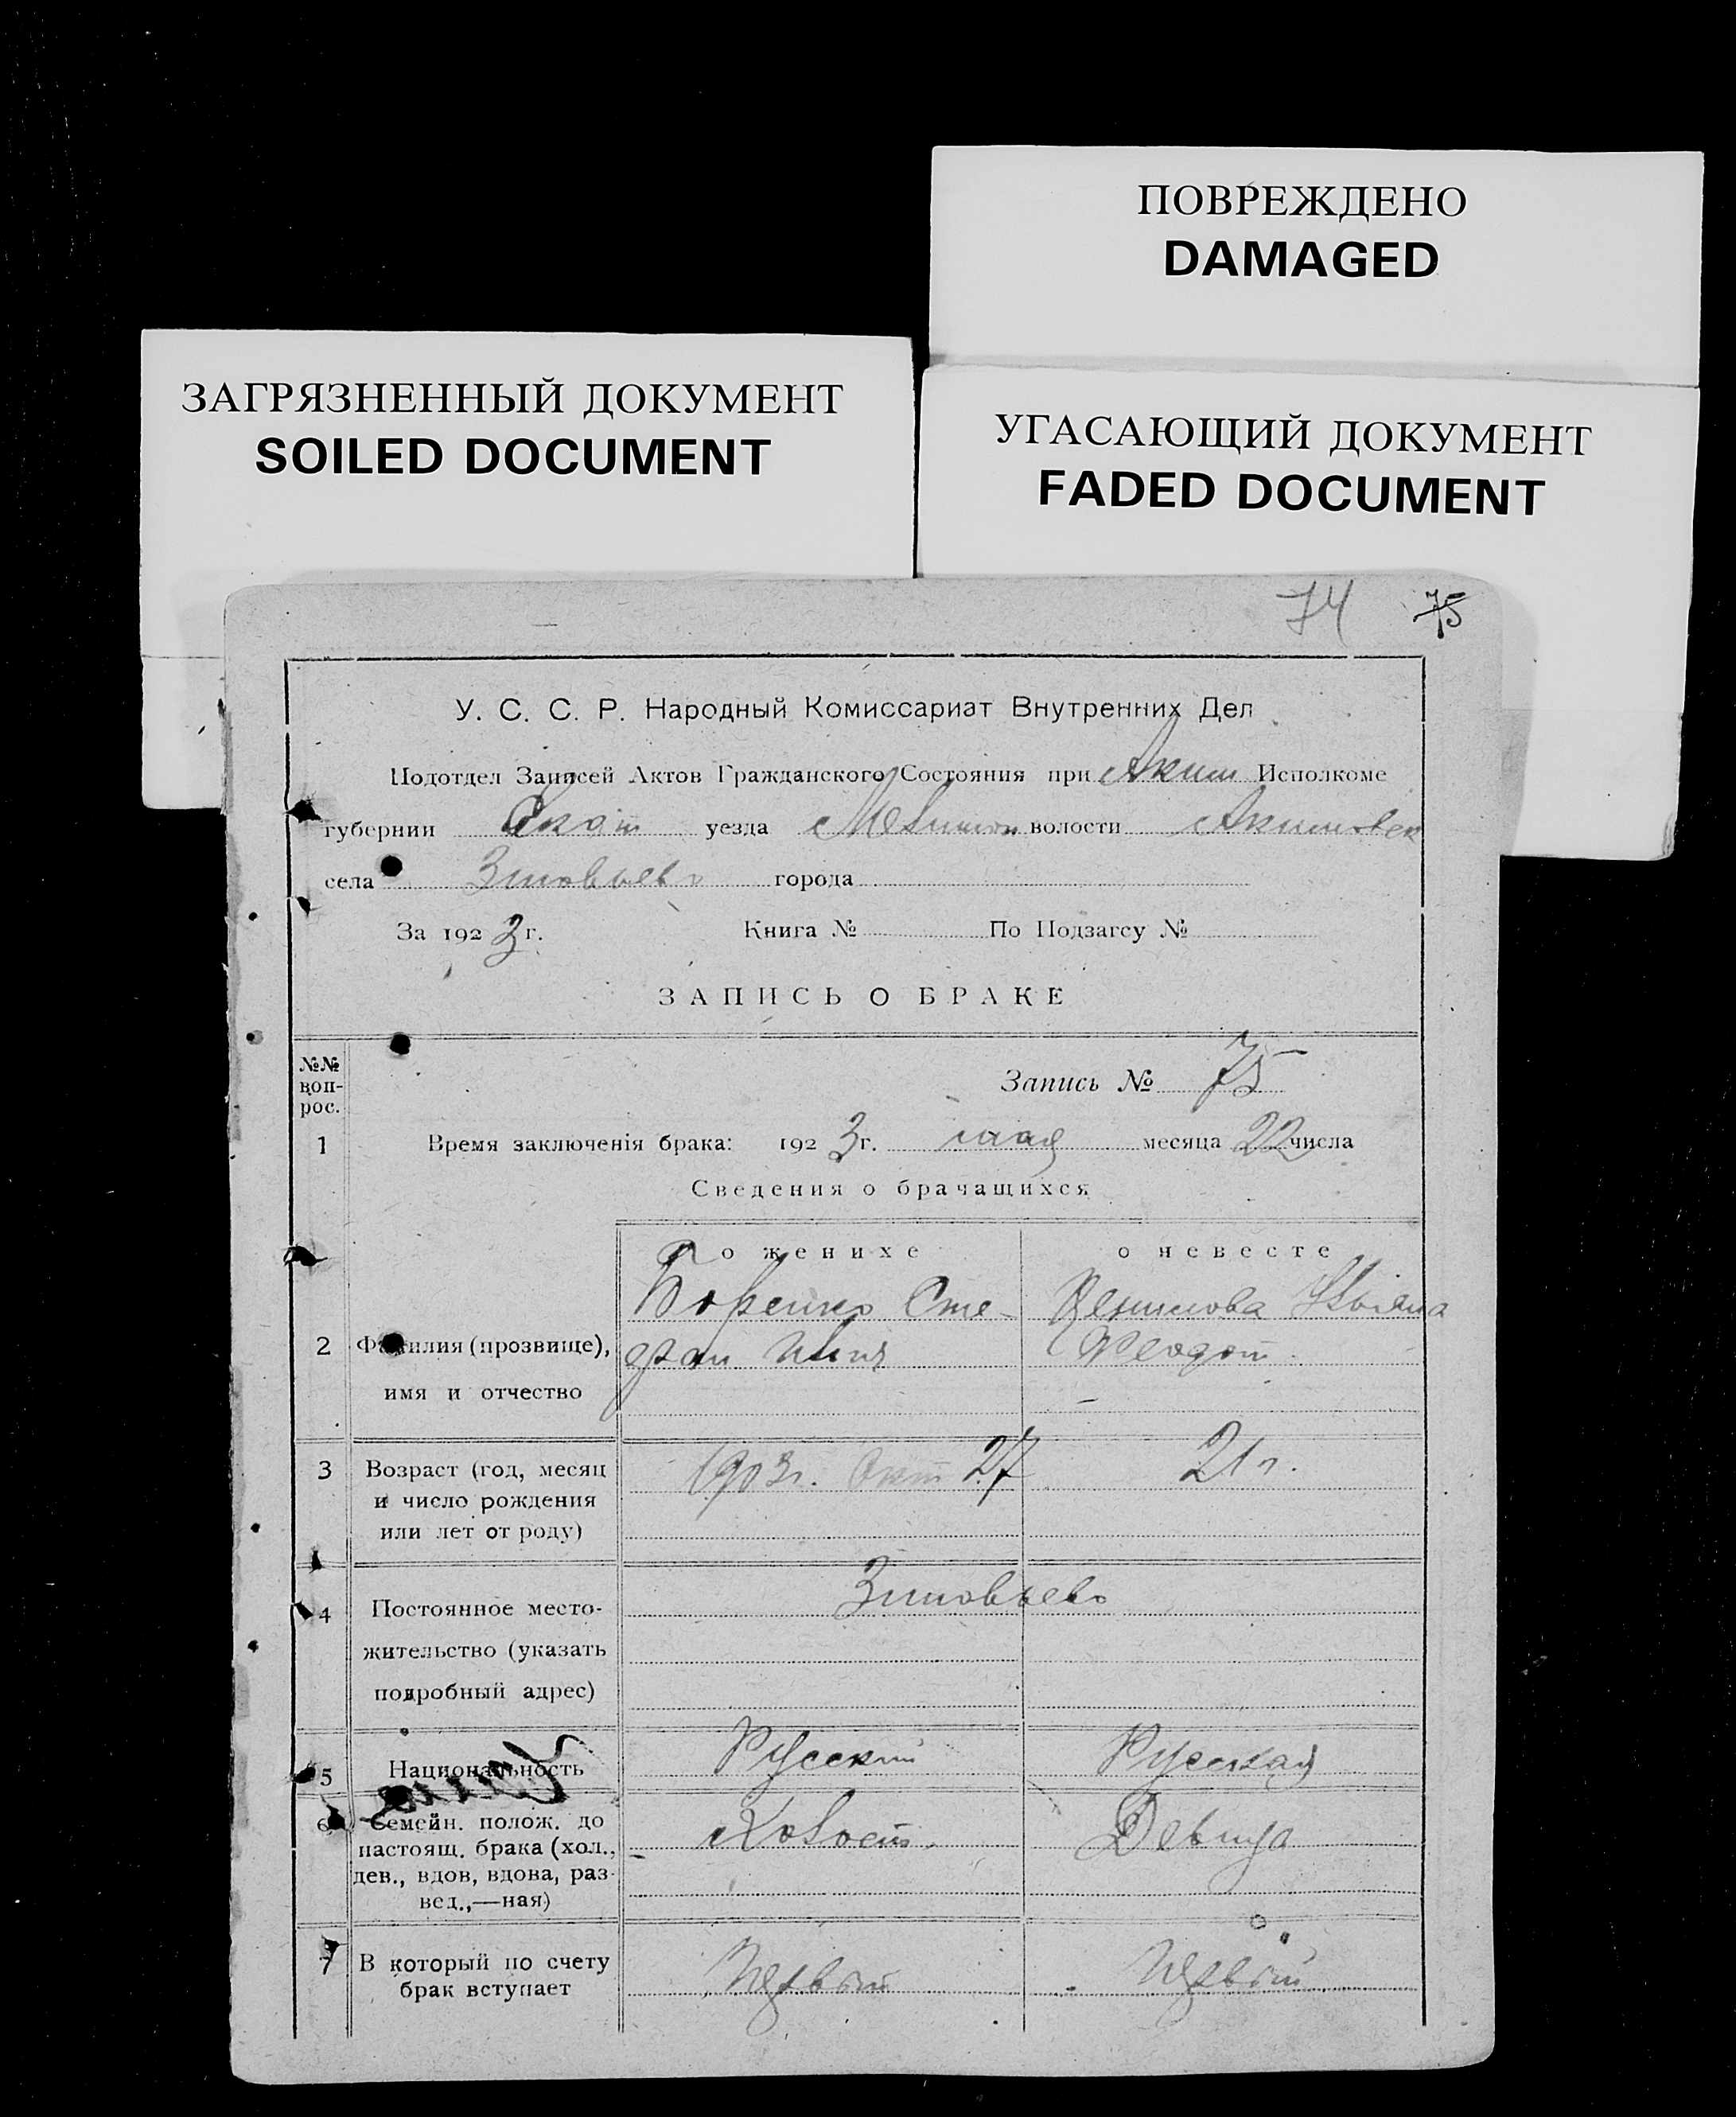 ПОВРЕЖДЕНО
DAMAGED
ЗАГРЯЗНЕННЫЙ ДОКУМЕНТ
SOILED DOCUMENT
УГАСАЮЩИЙ ДОКУМЕНТ
FADED DOCUMENT
74 75
У. С. С. Р. Народный Комиссариат Внутренних Дел
Подотдел Записей Актов Гражданского Состояния при Аким Исполкоме
губернии Екат уезда Мелитоп волости Акимовск
села Зиновьево города
За 1923 г. Книга № По Подзагсу №
ЗАПИСЬ О БРАКЕ
№№ воп-
рос.
Запись № 75
1 Время заключенія брака: 1923 г. мая месяца 22 числа
Сведения о брачащихся
о женихе о невесте
2 Фамилия (прозвище),
имя и отчество
Сте-
фан Ильич
Феодот.
3 Возраст (год, месяц
и число рождения
или лет от роду)
1903 г. Окт 27
21 г.
4 Постоянное место-
жительство (указать
подробный адрес)
Зиновьево
5 Национальность
Русский Русская
6 Семейн. полож. до
настоящ. брака (хол.,
дев., вдов, вдова, раз-
вед.,—ная)
Холост. Девица
7 В который по счету
брак вступает
Первый Первый